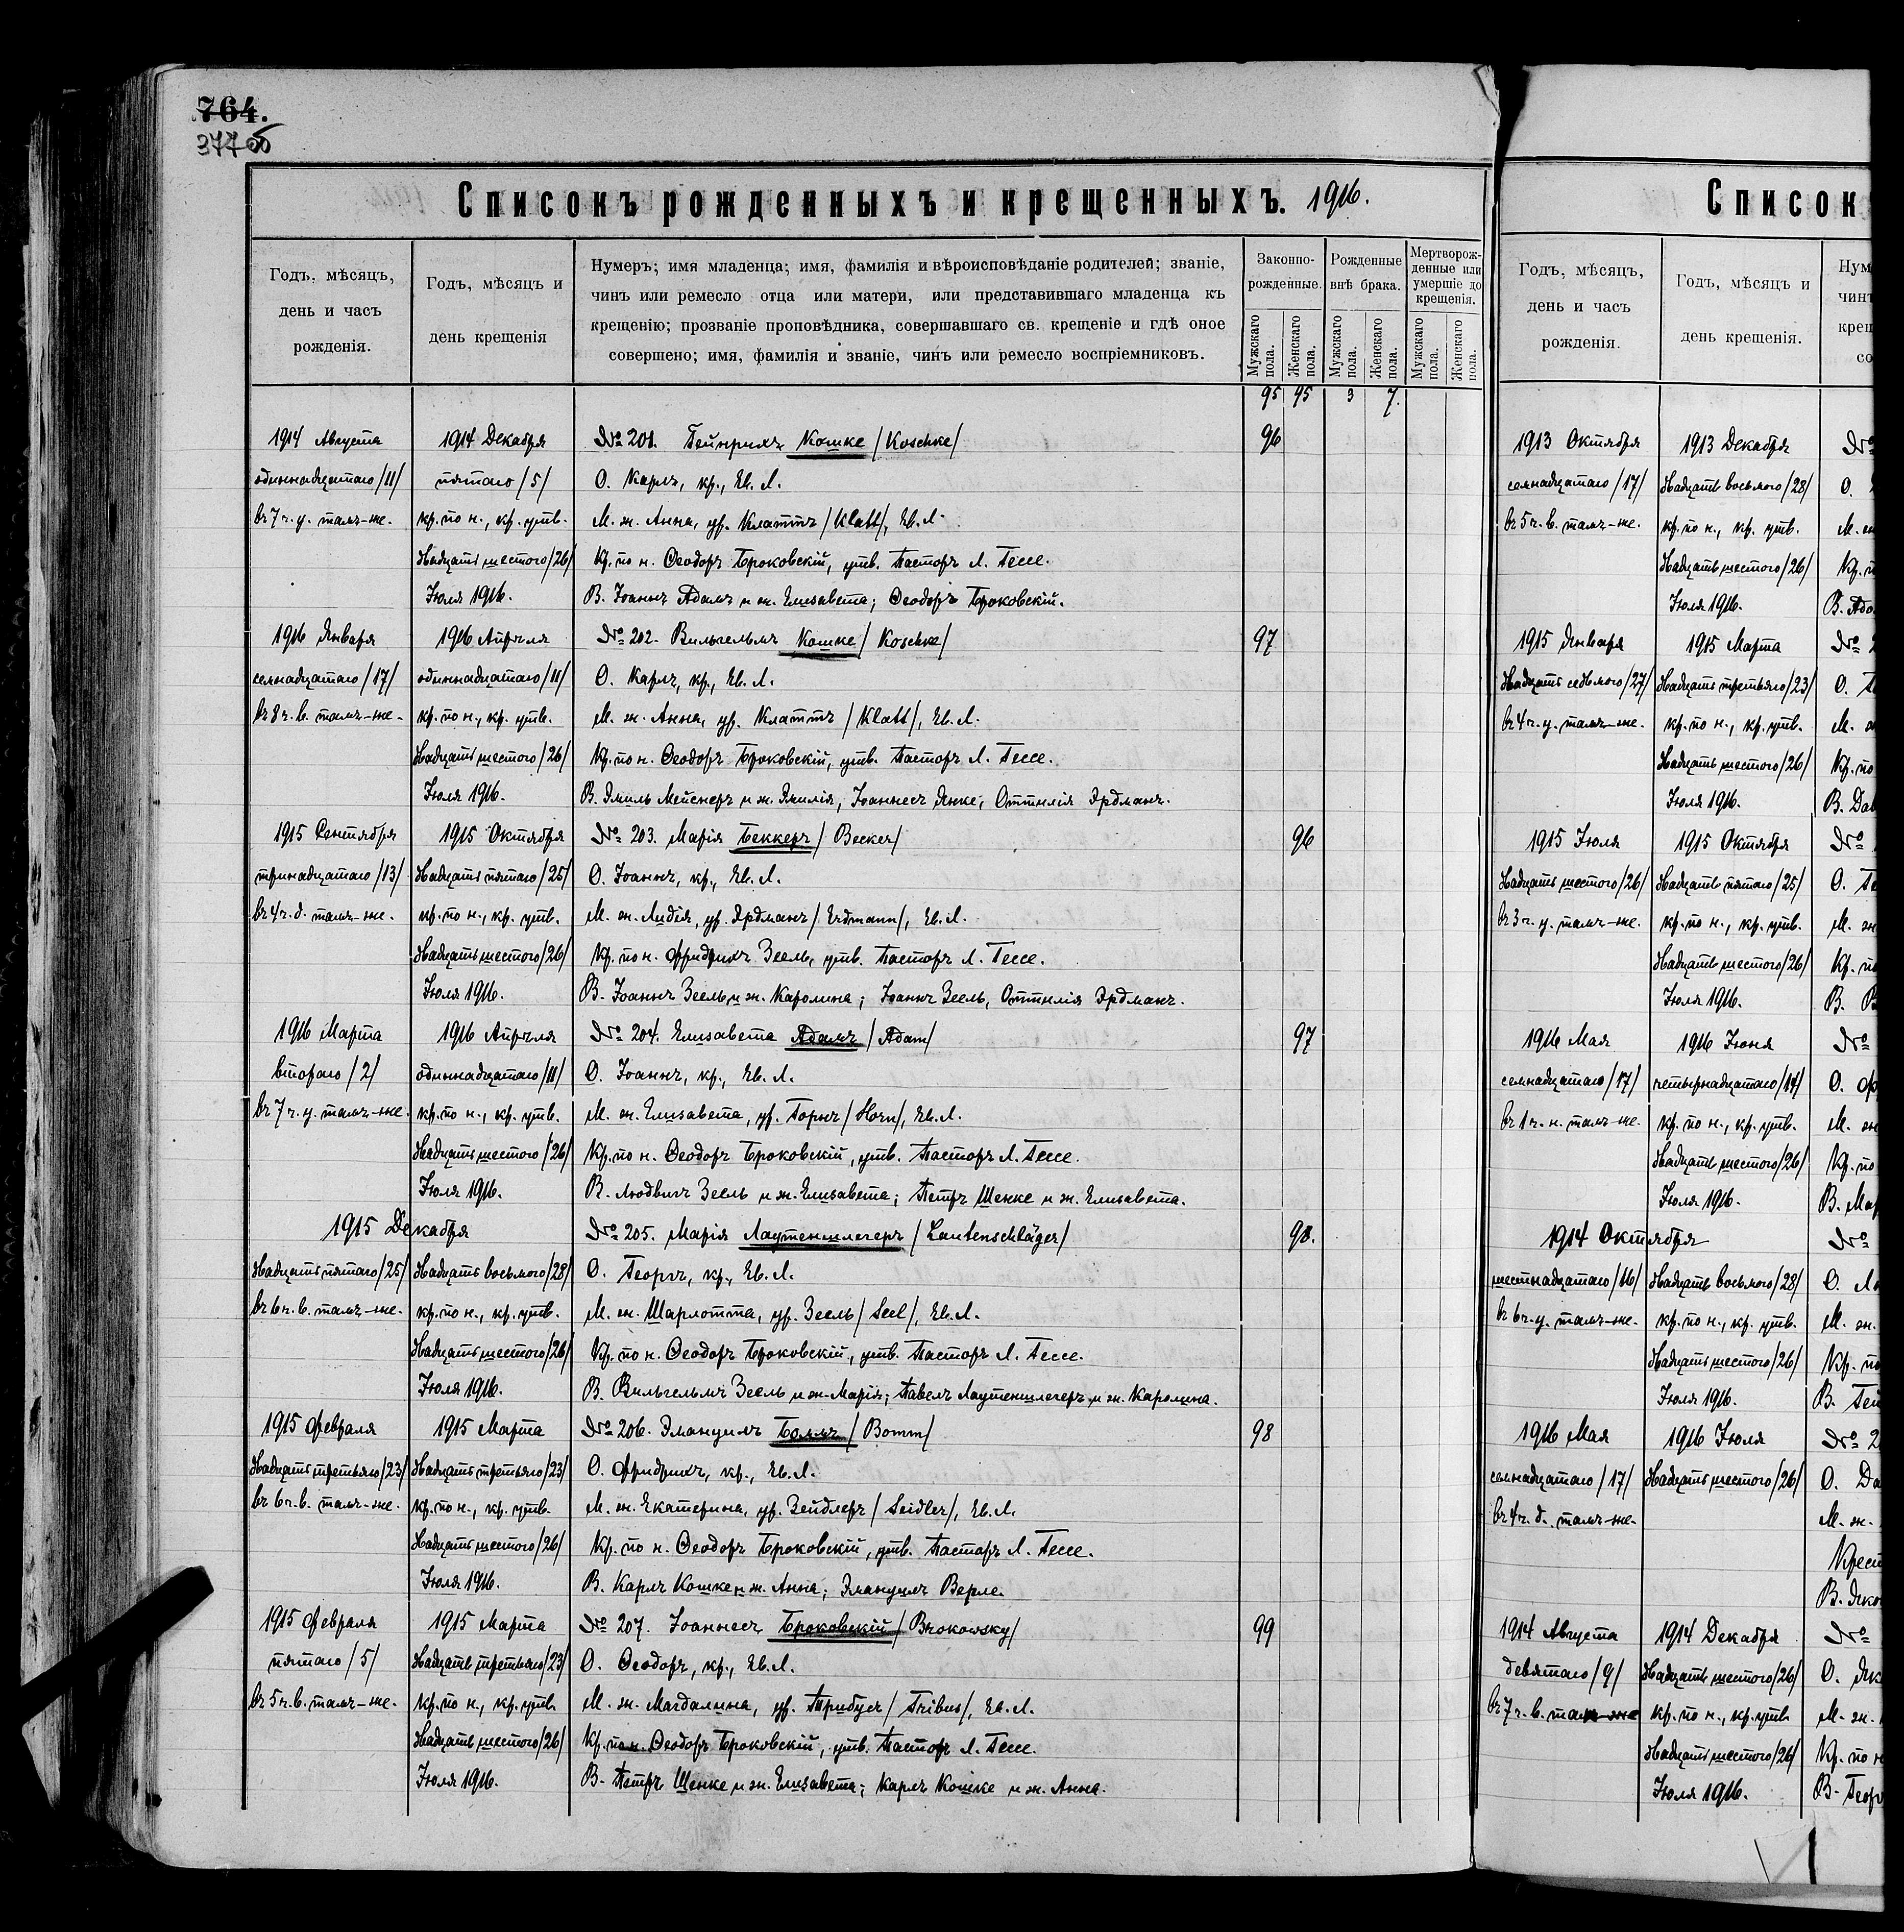 764.
377 об
Списокъ рожденныхъ и крещенныхъ. 1916.
Годъ, мѣсяцъ, день и часъ рожденія.
Годъ, мѣсяцъ и день крещенія
Нумеръ; имя младенца; имя, фамилія и вѣроисповѣданіе родителей; званіе,
чинъ или ремесло отца или матери, или представившаго младенца къ
крещенію; прозваніе проповѣдника, совершавшаго св. крещеніе и гдѣ оное
совершено; имя, фамилія и званіе, чинъ или ремесло воспріемниковъ.
Законно-рожденные.
Рожденные внѣ брака.
Мертворож-денные или умершіе до крещенія.
Мужскаго пола.
Женскаго пола.
Мужскаго пола.
Женскаго пола.
Мужскаго пола.
Женскаго пола.
95 95 3 7.
1914 Августа 1914 Декабря № 201. Гейнрихъ Кошке /Koschke/ 96
одиннадцатаго /11/ пятаго /5/ О. Карлъ, кр., Ев. Л.
въ 7 ч. у. тамъ-же. кр. по н., кр. утв. М. ж. Анна, ур. Клаттъ /Klatt/, Ев. Л.
двадцать шестого /26/ Кр. по н. Ѳеодоръ Броковскій, утв. Пасторъ Л. Гессе.
Іюля 1916. В. Іоаннъ Адамъ и ж. Елисавета; Ѳеодоръ Броковскій.
1916 Января 1916 Апрѣля № 202. Вильгельмъ Кошке /Koschke/ 97
семнадцатаго /17/ одиннадцатаго /11/ О. Карлъ, кр., Ев. Л.
въ 8 ч. в. тамъ-же. кр. по н., кр. утв. М. ж. Анна, ур. Клаттъ /Klatt/, Ев. Л.
двадцать шестого /26/ Кр. по н. Ѳеодоръ Броковскій, утв. Пасторъ Л. Гессе.
Іюля 1916. В. Эмиль Мейснеръ и ж. Эмилія, Іоаннесъ Янке, Оттилія Эрдманъ.
1915 Сентября 1915 Октября № 203. Марія Беккеръ /Becker/ 96
тринадцатаго /13/ двадцать пятаго /25/ О. Іоаннъ, кр., Ев. Л.
въ 4 ч. д. тамъ-же. кр. по н., кр. утв. М. ж. Лидія, ур. Эрдманъ /Erdmann/, Ев. Л.
двадцать шестого /26/ Кр. по н. Фридрихъ Зеель, утв. Пасторъ Л. Гессе.
Іюля 1916. В. Іоаннъ Зеель и ж. Каролина; Іоаннъ Зеель, Оттилія Эрдманъ.
1916 Марта 1916 Апрѣля № 204. Елисавета Адамъ /Adam/ 97
второго /2/ одиннадцатаго /11/ О. Іоаннъ, кр., Ев. Л.
въ 7 ч. у. тамъ-же. кр. по н., кр. утв. М. ж. Елисавета, ур. Горнъ /Horn/, Ев. Л.
двадцать шестого /26/ Кр. по н. Ѳеодоръ Броковскій, утв. Пасторъ Л. Гессе.
Іюля 1916. В. Людвигъ Зеель и ж. Елисавета; Петръ Шенке и ж. Елисавета.
1915 Декабря № 205. Марія Лаутеншлегеръ /Lautenschläger/ 98.
двадцать пятаго /25/ двадцать восьмого /28/ О. Георгъ, кр., Ев. Л.
въ 6 ч. в. тамъ-же. кр. по н., кр. утв. М. ж. Шарлотта, ур. Зеель /Seel/, Ев. Л.
двадцать шестого /26/ Кр. по н. Ѳеодоръ Броковскій, утв. Пасторъ Л. Гессе.
Іюля 1916. В. Вильгельмъ Зеель и ж. Марія; Павелъ Лаутеншлегеръ и ж. Каролина.
1915 Февраля 1915 Марта № 206. Эмануилъ Боммъ /Bomm/ 98
двадцать третьяго /23/ двадцать третьяго /23/ О. Фридрихъ, кр., Ев. Л.
въ 6 ч. в. тамъ-же. кр. по н., кр. утв. М. ж. Екатерина, ур. Зейдлеръ /Seidler/, Ев. Л.
двадцать шестого /26/ Кр. по н. Ѳеодоръ Броковскій, утв. Пасторъ Л. Гессе.
Іюля 1916. В. Карлъ Кошке и ж. Анна; Эмануилъ Верле.
1915 Февраля 1915 Марта № 207. Іоаннесъ Броковскій /Brokowsky/ 99
пятаго /5/ двадцать третьяго /23/ О. Ѳеодоръ, кр., Ев. Л.
въ 5 ч. в. тамъ-же. кр. по н., кр. утв. М. ж. Магдалина, ур. Трибусъ /Tribus/, Ев. Л.
двадцать шестого /26/ Кр. по н. Ѳеодоръ Броковскій, утв. Пасторъ Л. Гессе.
Іюля 1916. В. Петръ Шенке и ж. Елисавета; Карлъ Кошке и ж. Анна.
Список
Годъ, мѣсяцъ, день и часъ рожденія.
Годъ, мѣсяцъ и день крещенія.
Нум
чинъ
крещ
со
1913 Октября 1913 Декабря №
семнадцатаго /17/ двадцать восьмого /28/ О.
въ 5 ч. в. тамъ-же. кр. по н., кр. утв. М. ж
двадцать шестого /26/ Кр. п
Іюля 1916. В. Адо
1915 Января 1915 Марта № 2
двадцать седьмого /27/ двадцать третьяго /23/ О.
въ 4 ч. у. тамъ-же. кр. по н., кр. утв. М. ж
двадцать шестого /26/ Кр. по
Іюля 1916. В. Дав
1915 Іюля 1915 Октября №
двадцать шестого /26/ двадцать пятаго /25/ О. Ге
въ 3 ч. у. тамъ-же. кр. по н., кр. утв. М. ж
двадцать шестого /26/ Кр. по
Іюля 1916. В.
1916 Мая 1916 Іюня №
семнадцатаго /17/ четырнадцатаго /14/ О. Фр
въ 1 ч. н. тамъ-же. кр. по н., кр. утв. М. ж
двадцать шестого /26/ Кр. по
Іюля 1916. В. Мар
1914 Октября №
шестнадцатаго /16/ двадцать восьмого /28/ О. Л
въ 6 ч. у. тамъ-же. кр. по н., кр. утв. М. ж.
двадцать шестого /26/ Кр. по
Іюля 1916. В. Гей
1916 Мая 1916 Іюля № 2
семнадцатаго /17/ двадцать шестого /26/ О. Да
въ 4 ч. д. тамъ-же. М. ж.
Крест
В. Яко
1914 Августа 1914 Декабря №
девятаго /9/ двадцать шестого /26/ О. Як
въ 7 ч. в. тамъ-же кр. по н., кр. утв М. ж.
двадцать шестого /26/ Кр. по н
Іюля 1916. В. Георг